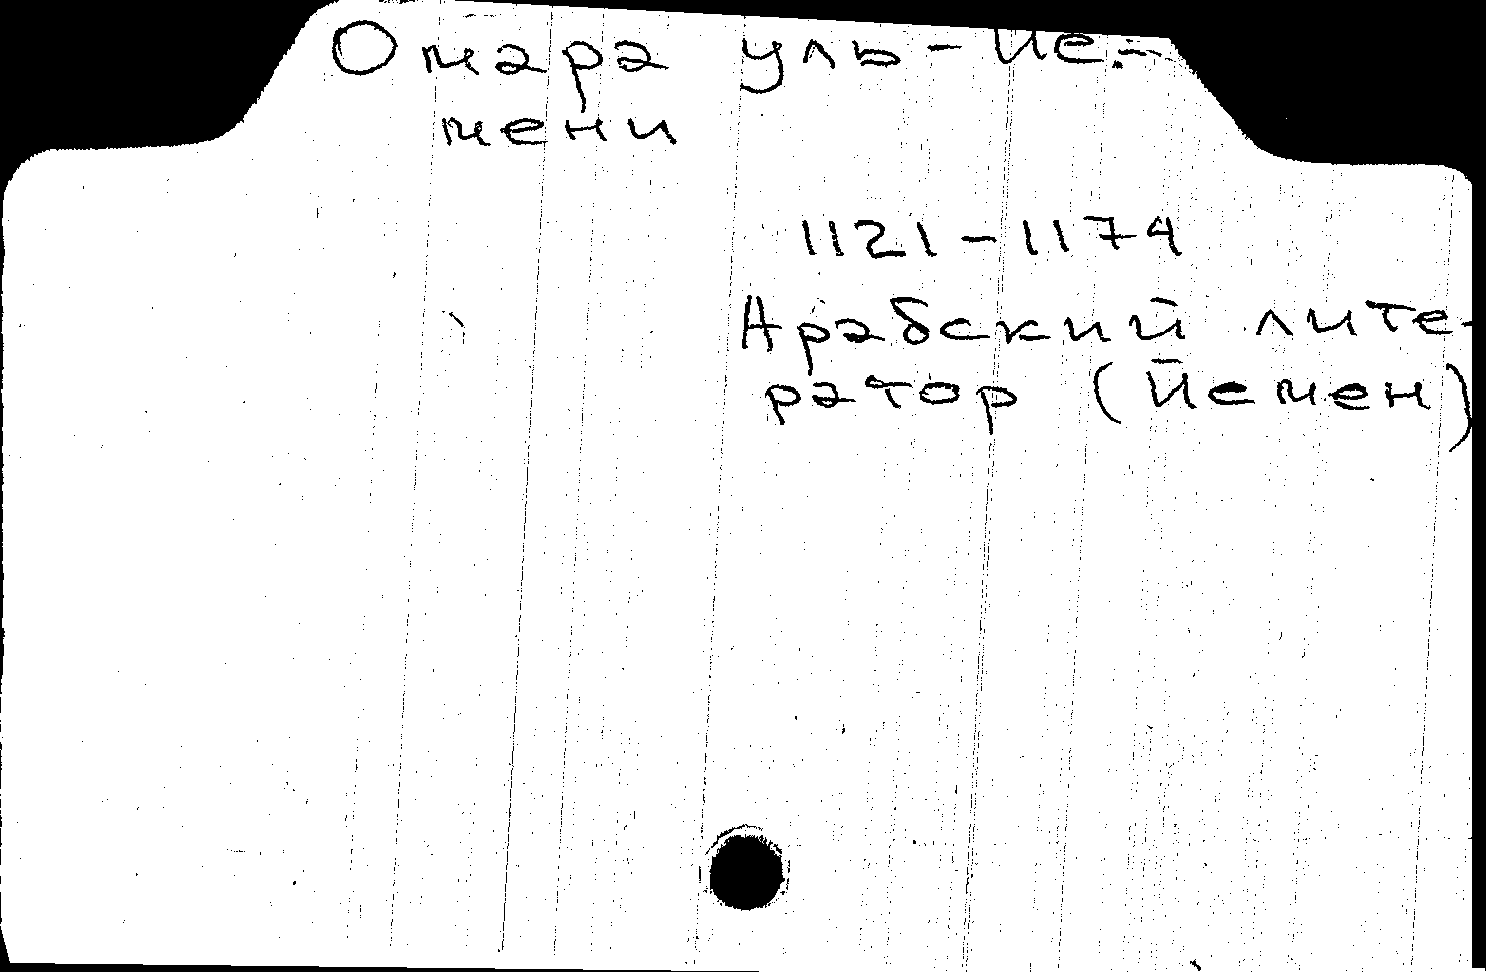 Омара уль-Йе-
мени
1121-1174
Арабский лите-
ратор (Йемен)